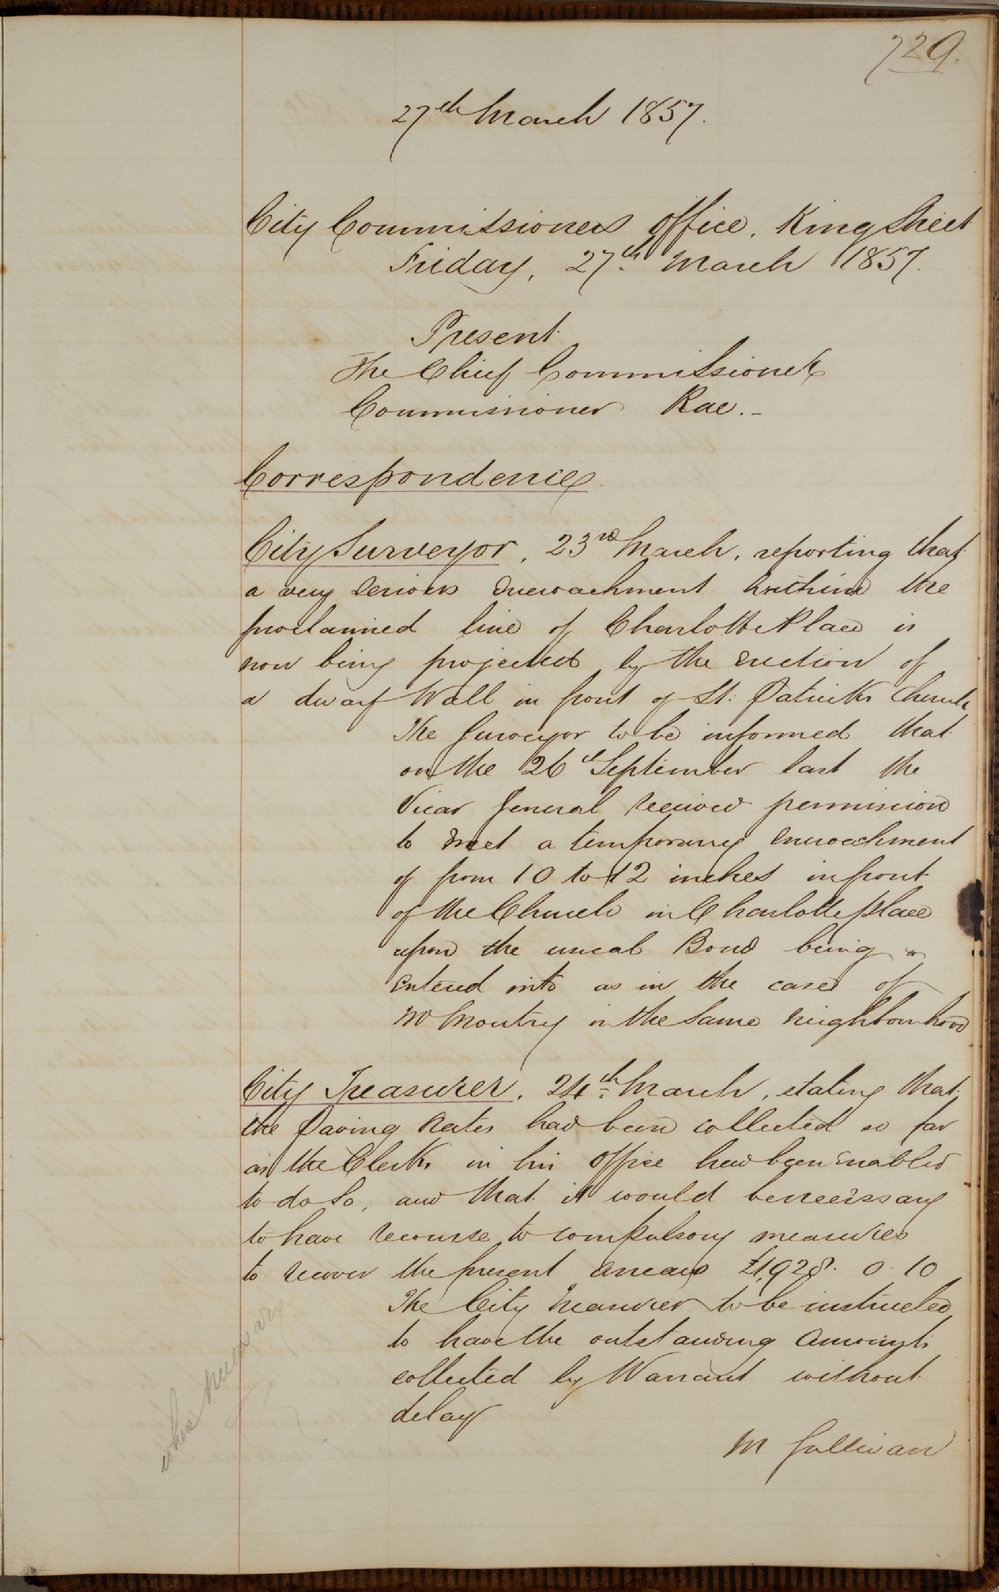 729.
27th March 1857.
City Commissioners Office, King Street
Friday, 27th March 1857.
Present
The Chief Commissioner
Commissioner Rae.-
Correspondence
City Surveyor, 23rd March, reporting that
a very serious encroachment within the
proclaimed line of Charlotte Place is
now being projected by the erection of
a dwarf Wall in front of St. Patricks Church
The Surveyor to be informed that
on the 26th September last the
Vicar General received permission
to erect a temporary encroachment
of from 10 to 12 inches in front
of the Church in Charlotte place
upon the usual Bond being
entered into as in the case of
Mr Moutry in the same neighbourhood
City Treasurer, 24th March, stating that
the Paving Rates had been collected so far
as the Clerks in his Office had been enabled
to do so, and that it would be necessary
to have recourse to compulsory measures
to recover the present arrears £1,928. 0. 10
The City Treasurer to be instructed
to have the outstanding amounts
collected by Warrant without
delay
when necessary
M Sullivan